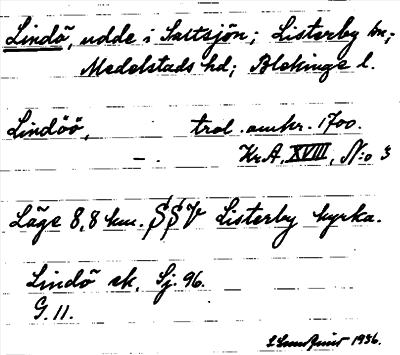 Lindö, udde i Saltsjön; Listerby sn;
Medelstads hd; Blekinge l.
Lindöö, trol. omkr. 1700.
— . KrA, XVIII, N:o 3
Läge 8,8 km. SSV Listerby kyrka.
Lindö sk. Sj. 96.
G. 11.
1936.